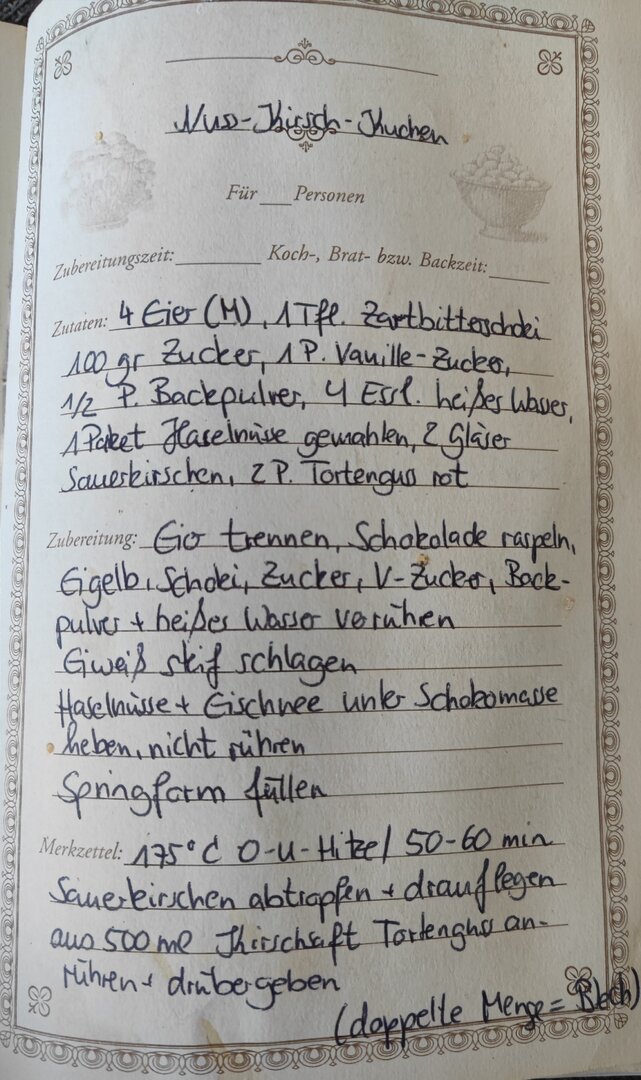 Nuss-Kirsch-Kuchen
Für ___ Personen
Zubereitungszeit: ______ Koch-, Brat- bzw. Backzeit: ______
Zutaten: 4 Eier (M), 1 Tfl. Zartbitterschoki
100 gr Zucker, 1 P. Vanille-Zucker,
1/2 P. Backpulver, 4 Essl. heißes Wasser,
1 Paket Haselnüsse gemahlen, 2 Gläser
Sauerkirschen, 2 P. Tortenguss rot
Zubereitung: Eier trennen, Schokolade raspeln,
Eigelb, Schoki, Zucker, V-Zucker, Back-
pulver + heißes Wasser verrühen
Eiweiß steif schlagen
Haselnüsse + Eischnee unter Schokomasse
heben, nicht rühren
Springform füllen
Merkzettel: 175°C O-U-Hitze / 50-60 min
Sauerkirschen abtropfen + drauflegen
aus 500 ml Kirschsaft Tortenguss an-
rühren + drübergeben
(doppelte Menge = Blech)